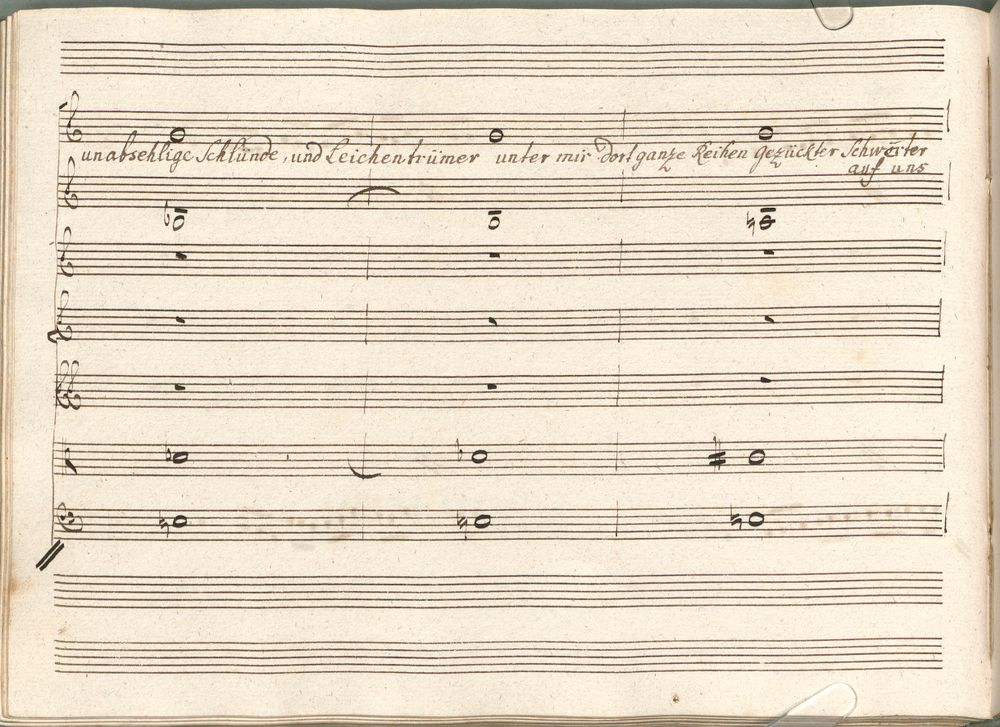 unabsehlige Schlünde, und Leichentrümer unter mir dort ganze Reihen gezückter Schwerter
auf uns